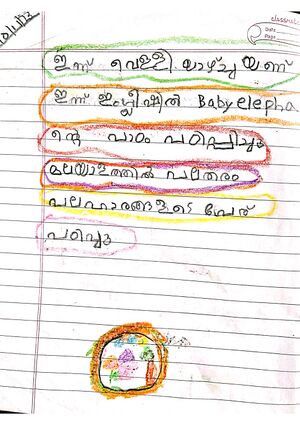 classmate
Date
Page
ഇന്ന് വെള്ളി യാഴ്ച്ച യണ്
ഇന്ന് ഇംഗ്ലീഷിൽ Baby elepha
ന്റെ പാഠം പഠിപ്പിച്ചു
മലയാളത്തിൽ പലതരം
പലഹാരങ്ങളുടെ പേര്
പഠിച്ചു